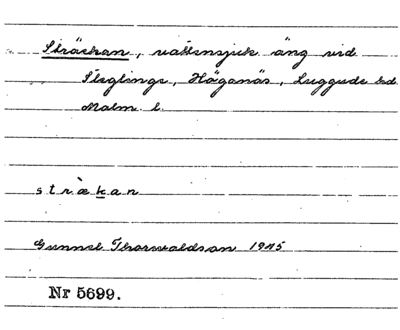 Sträckan, vattensjuk äng vid
Steglinge, Höganäs, Luggude hd.
Malm. l.
stràkan
Gunnel Thorwaldson 1945
Nr 5699.